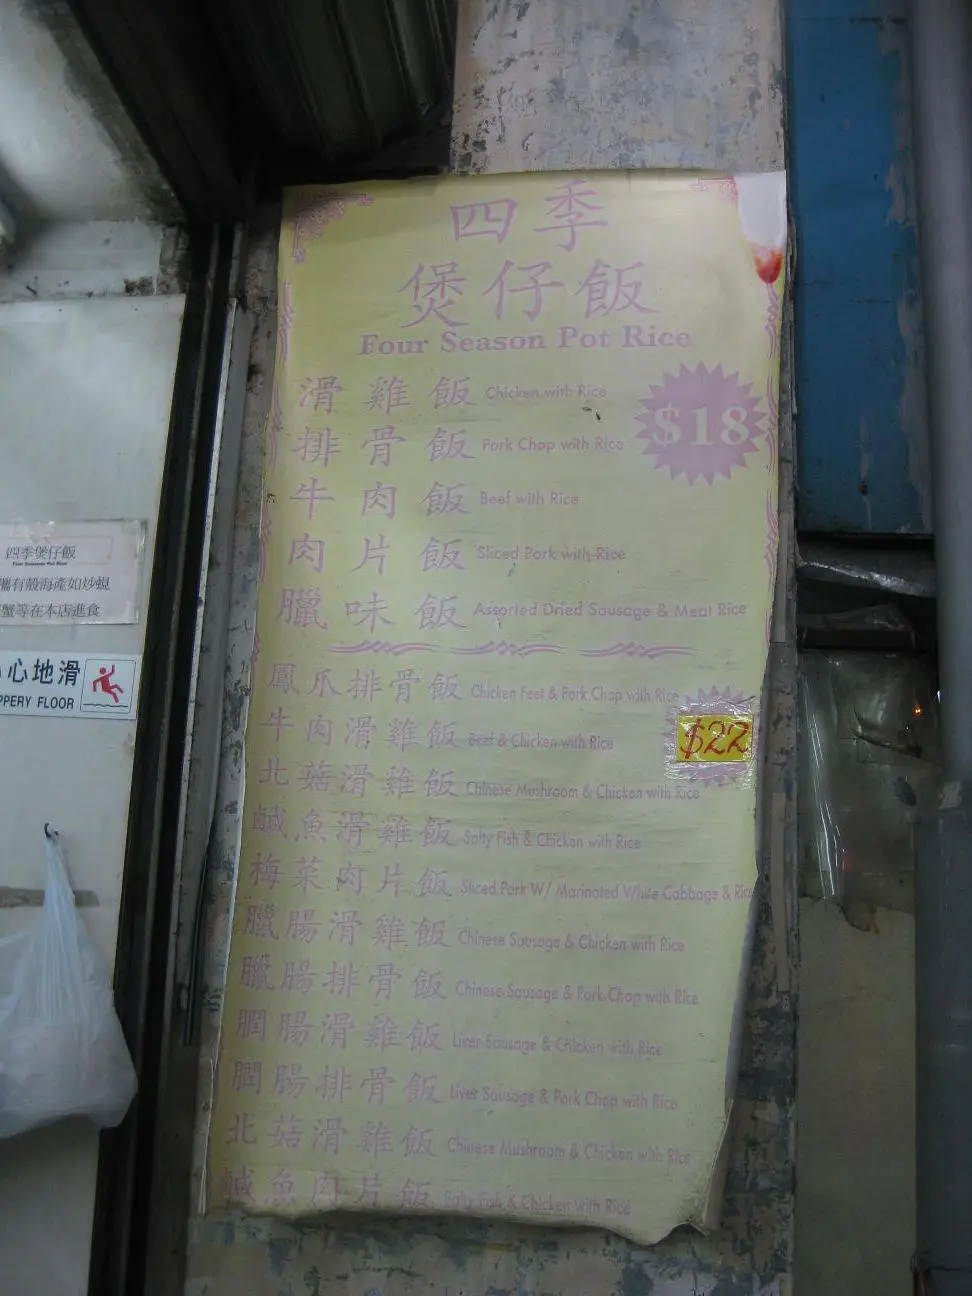 四季
煲仔飯
Four Season Pot Rice
滑雞飯 Chicken with Rice
$18
排骨飯 Pork Chop with Rice
牛肉飯 Beef with Rice
肉片飯 Sliced Pork with Rice
臘味飯 Assorted Dried Sausage & Meat Rice
鳳爪排骨飯 Chicken Feet & Pork Chop with Rice
牛肉滑雞飯 Beef & Chicken with Rice
$22
北菇滑雞飯 Chinese Mushroom & Chicken with Rice
鹹魚滑雞飯 Salty Fish & Chicken with Rice
梅菜肉片飯 Sliced Pork W/ Marinated White Cabbage & Rice
臘腸滑雞飯 Chinese Sausage & Chicken with Rice
臘腸排骨飯 Chinese Sausage & Pork Chop with Rice
膶腸滑雞飯 Liver Sausage & Chicken with Rice
膶腸排骨飯 Liver Sausage & Pork Chop with Rice
北菇滑雞飯 Chinese Mushroom & Chicken with Rice
鹹魚肉片飯 Salty Fish & Chicken with Rice
四季煲仔飯
Four Seasons Pot Rice
攜有殼海產如炒蜆
蟹等在本店進食
心地滑
PPERY FLOOR